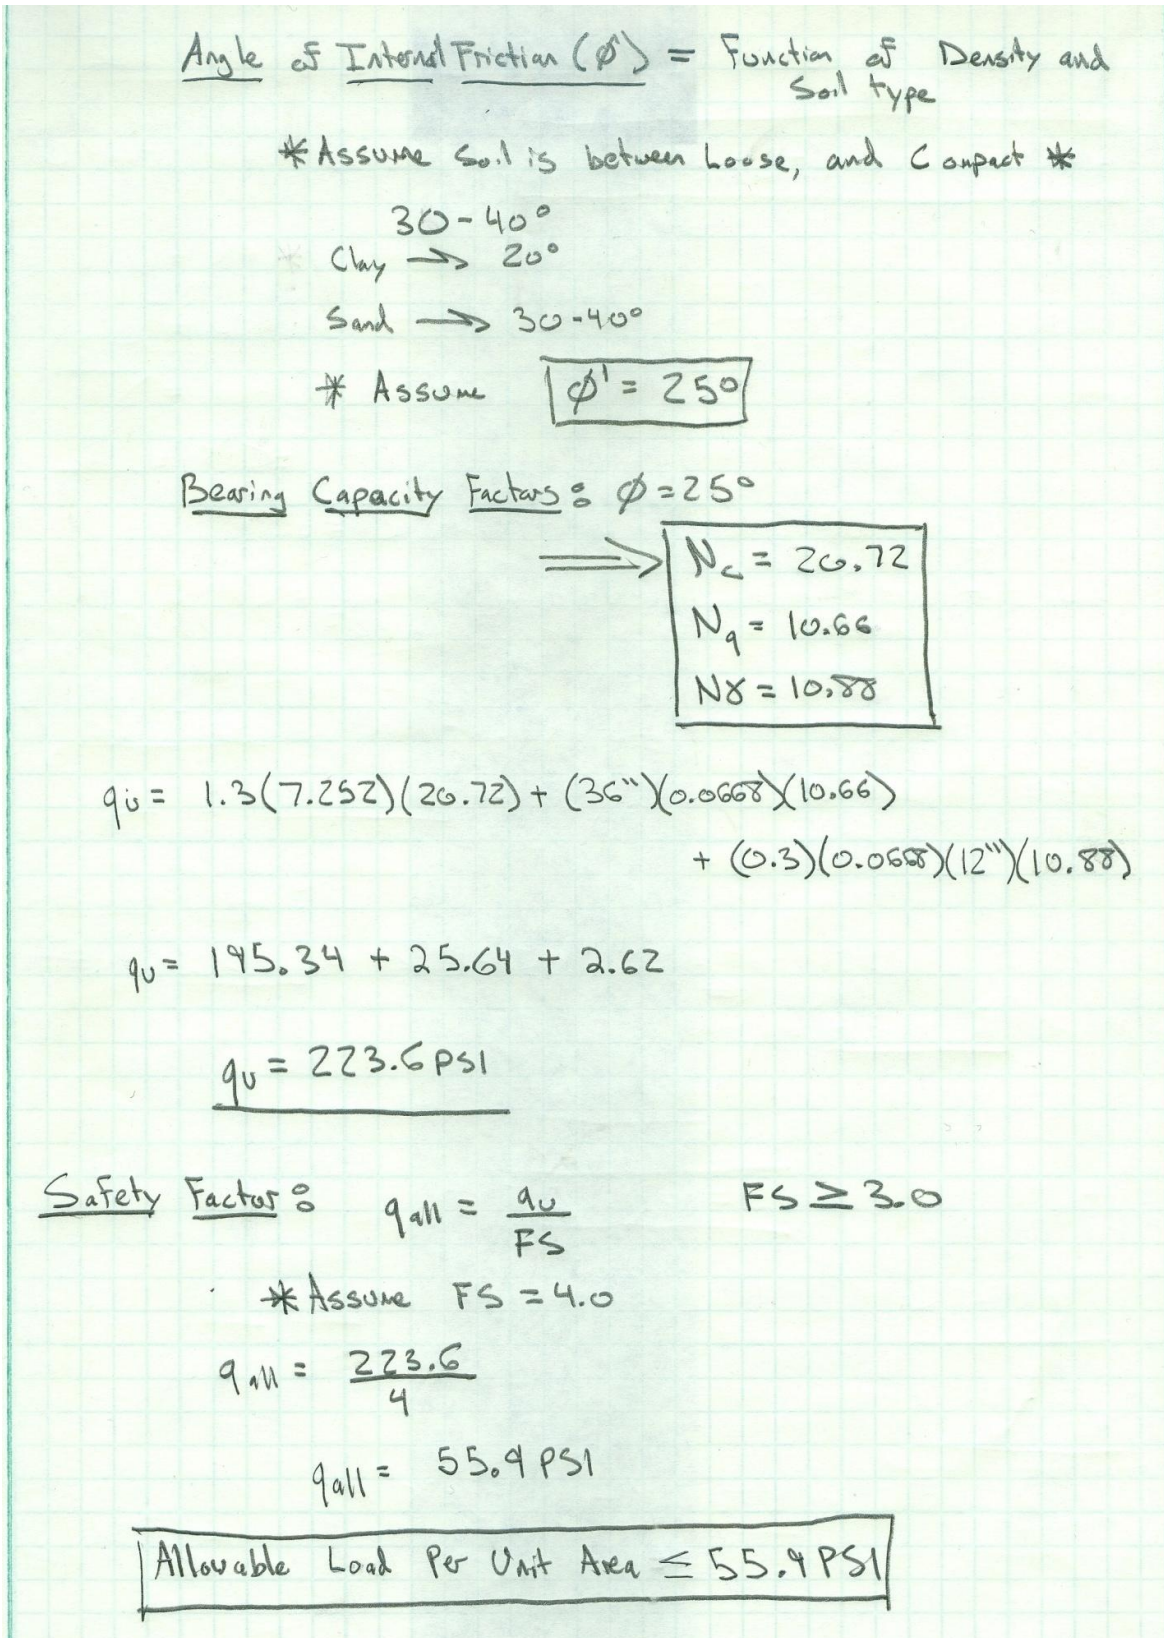 Angle of Internal Friction (φ') = Function of Density and
Soil type
* Assume Soil is between Loose, and Compact *
30-40°
Clay → 20°
Sand → 30-40°
* Assume φ' = 25°
Bearing Capacity Factors: φ = 25°
⇒ Nc = 20.72
Nq = 10.66
Nγ = 10.88
qu = 1.3(7.252)(20.72) + (36")(0.0668)(10.66)
+ (0.3)(0.0668)(12")(10.88)
qu = 195.34 + 25.64 + 2.62
qu = 223.6 PSI
Safety Factor: qall = qu / FS FS ≥ 3.0
* Assume FS = 4.0
qall = 223.6 / 4
qall = 55.9 PSI
Allowable Load Per Unit Area ≤ 55.9 PSI